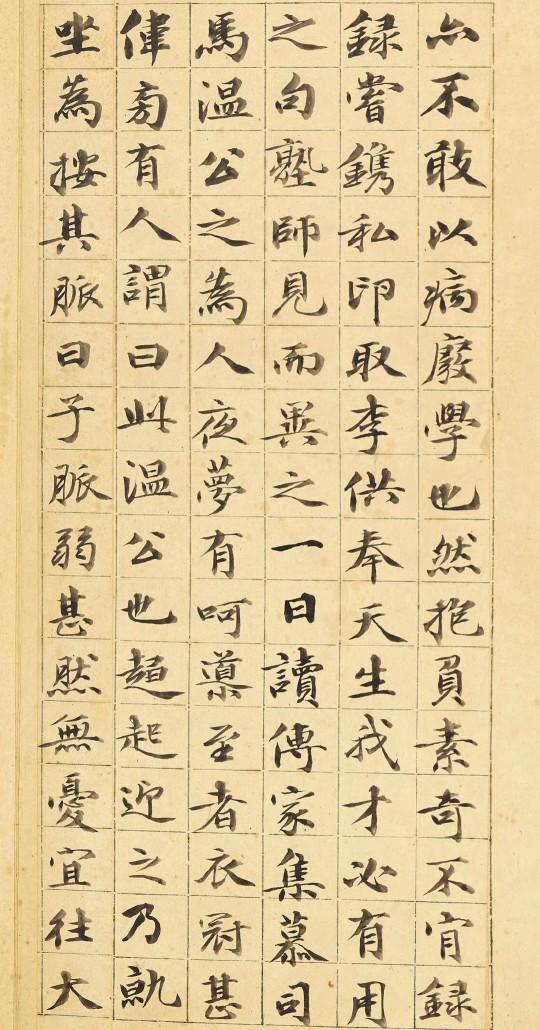 亦不敢以病廢學也然抱負素奇不肎録
録嘗鐫私印取李供奉天生我才必有用
之句塾師見而異之一日讀傳家集慕司
馬温公之為人夜夢有呵導至者衣冠甚
偉旁有人謂曰此温公也趨起迎之乃就
坐為按其脈曰子脈弱甚然無憂宜往大